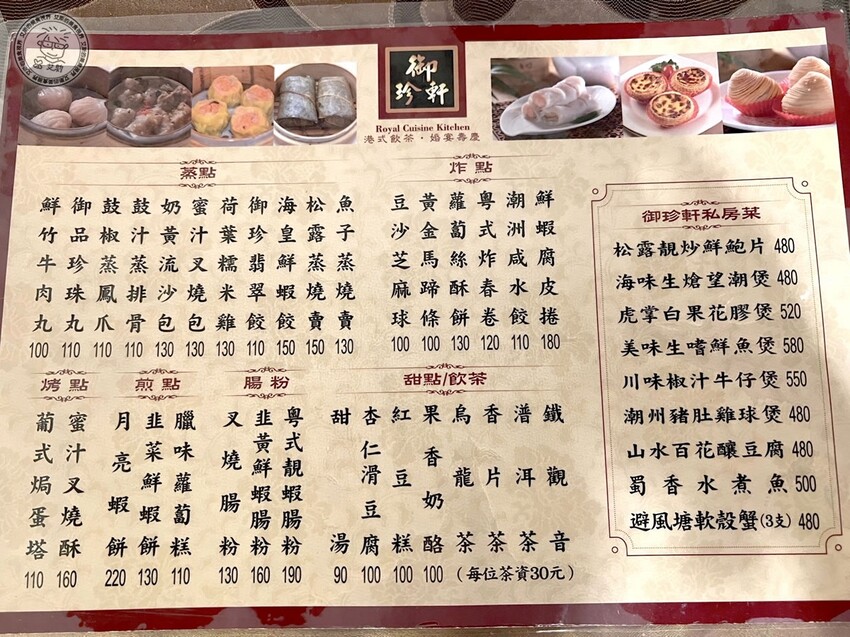 御珍軒
Royal Cuisine Kitchen
港式飲茶・婚宴壽慶
蒸點
鮮竹牛肉丸 100
御品珍珠丸 110
鼓椒蒸鳳爪 110
鼓汁蒸排骨 110
奶黃流沙包 130
蜜汁叉燒包 130
荷葉糯米雞 130
御珍翡翠餃 110
海皇鮮蝦餃 150
松露蒸燒賣 150
魚子蒸燒賣 130
炸點
豆沙芝麻球 100
黃金馬蹄條 100
蘿蔔絲酥餅 130
粵式炸春卷 120
潮洲咸水餃 110
鮮蝦腐皮捲 180
烤點
葡式焗蛋塔 110
蜜汁叉燒酥 160
煎點
月亮蝦餅 220
韭菜鮮蝦餅 130
臘味蘿蔔糕 110
腸粉
叉燒腸粉 130
韭黃鮮蝦腸粉 160
粵式靚蝦腸粉 190
甜點/飲茶
甜湯 90
杏仁滑豆腐 100
紅豆糕 100
果香奶酪 100
烏龍茶
香片茶
潽洱茶
鐵觀音
(每位茶資30元)
御珍軒私房菜
松露靚炒鮮鮑片 480
海味生熗望潮煲 480
虎掌白果花膠煲 520
美味生嗜鮮魚煲 580
川味椒汁牛仔煲 550
潮州豬肚雞球煲 480
山水百花釀豆腐 480
蜀香水煮魚 500
避風塘軟殼蟹(3支) 480